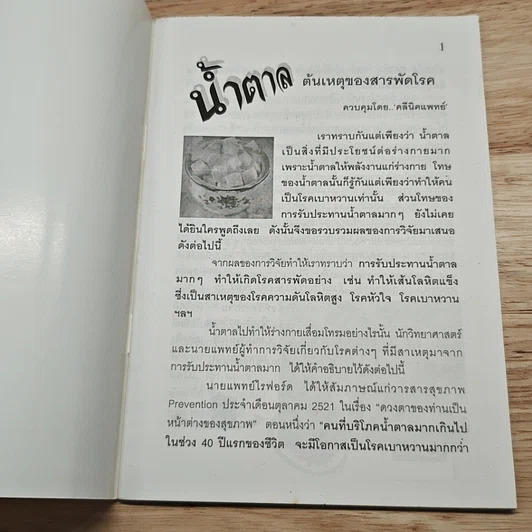 1
น้ำตาล ต้นเหตุของสารพัดโรค
ควบคุมโดย..'คลีนิคแพทย์'
เราทราบกันแต่เพียงว่า น้ำตาล
เป็นสิ่งที่มีประโยชน์ต่อร่างกายมาก
เพราะน้ำตาลให้พลังงานแก่ร่างกาย โทษ
ของน้ำตาลนั้นก็รู้กันแต่เพียงว่าทำให้คน
เป็นโรคเบาหวานเท่านั้น ส่วนโทษของ
การรับประทานน้ำตาลมากๆ ยังไม่เคย
ได้ยินใครพูดถึงเลย ดังนั้นจึงขอรวบรวมผลของการวิจัยมาเสนอ
ดังต่อไปนี้
จากผลของการวิจัยทำให้เราทราบว่า การรับประทานน้ำตาล
มากๆ ทำให้เกิดโรคสารพัดอย่าง เช่น ทำให้เส้นโลหิตแข็ง
ซึ่งเป็นสาเหตุของโรคความดันโลหิตสูง โรคหัวใจ โรคเบาหวาน
ฯลฯ
น้ำตาลไปทำให้ร่างกายเสื่อมโทรมอย่างไรนั้น นักวิทยาศาสตร์
และนายแพทย์ผู้ทำการวิจัยเกี่ยวกับโรคต่างๆ ที่มีสาเหตุมาจาก
การรับประทานน้ำตาลมาก ได้ให้คำอธิบายไว้ดังต่อไปนี้
นายแพทย์ไรฟอร์ด ได้ให้สัมภาษณ์แก่วารสารสุขภาพ
Prevention ประจำเดือนตุลาคม 2521 ในเรื่อง "ดวงตาของท่านเป็น
หน้าต่างของสุขภาพ" ตอนหนึ่งว่า "คนที่บริโภคน้ำตาลมากเกินไป
ในช่วง 40 ปีแรกของชีวิต จะมีโอกาสเป็นโรคเบาหวานมากกว่า